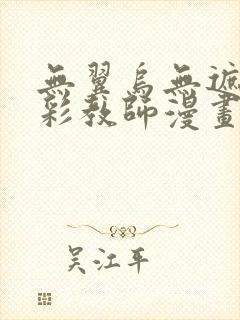 無翼烏無遮
彩教師漫畫
吴江平